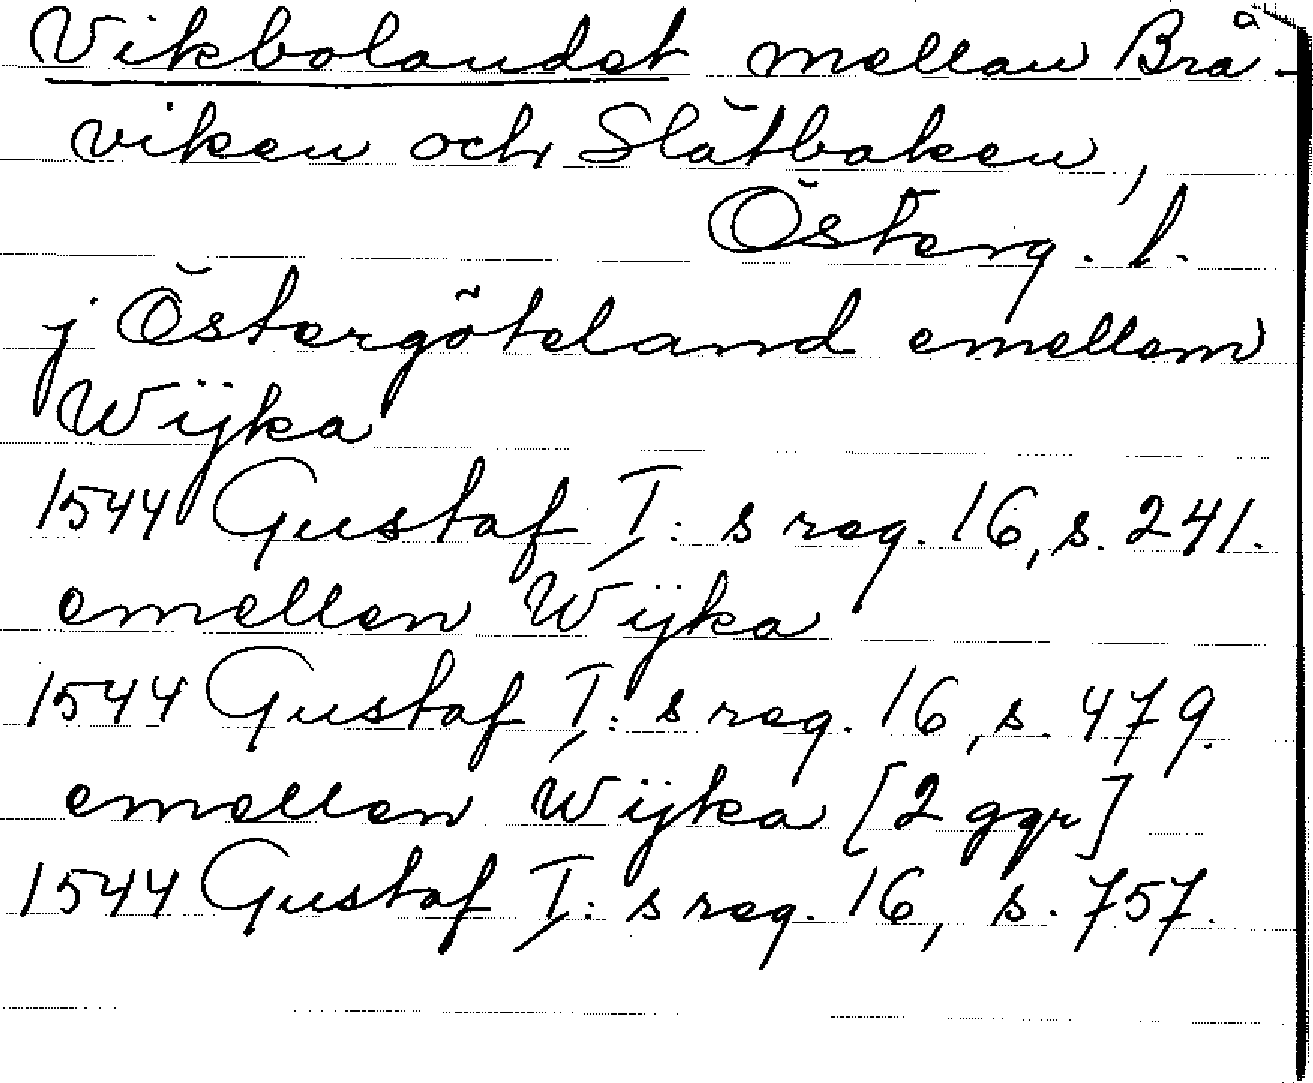 Vikbolandet mellan Brå-
viken och Slätbaken,
Österg. l.
j Östergöteland emellem
Wijka
1544 Gustaf I:s reg. 16, s. 241.
emellen Wijka
1544 Gustaf I:s reg. 16, s. 479.
emellen Wijka [2 ggr]
1544 Gustaf I:s reg. 16, s. 757.